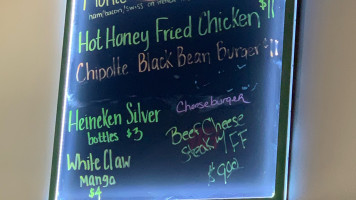 ham/bacon/swiss on
Hot Honey Fried Chicken $11
Chipotle Black Bean Burger $11
Heineken Silver
bottles $3
White Claw
Mango
$4
Cheeseburger
Beer Cheese
Steak w/ FF